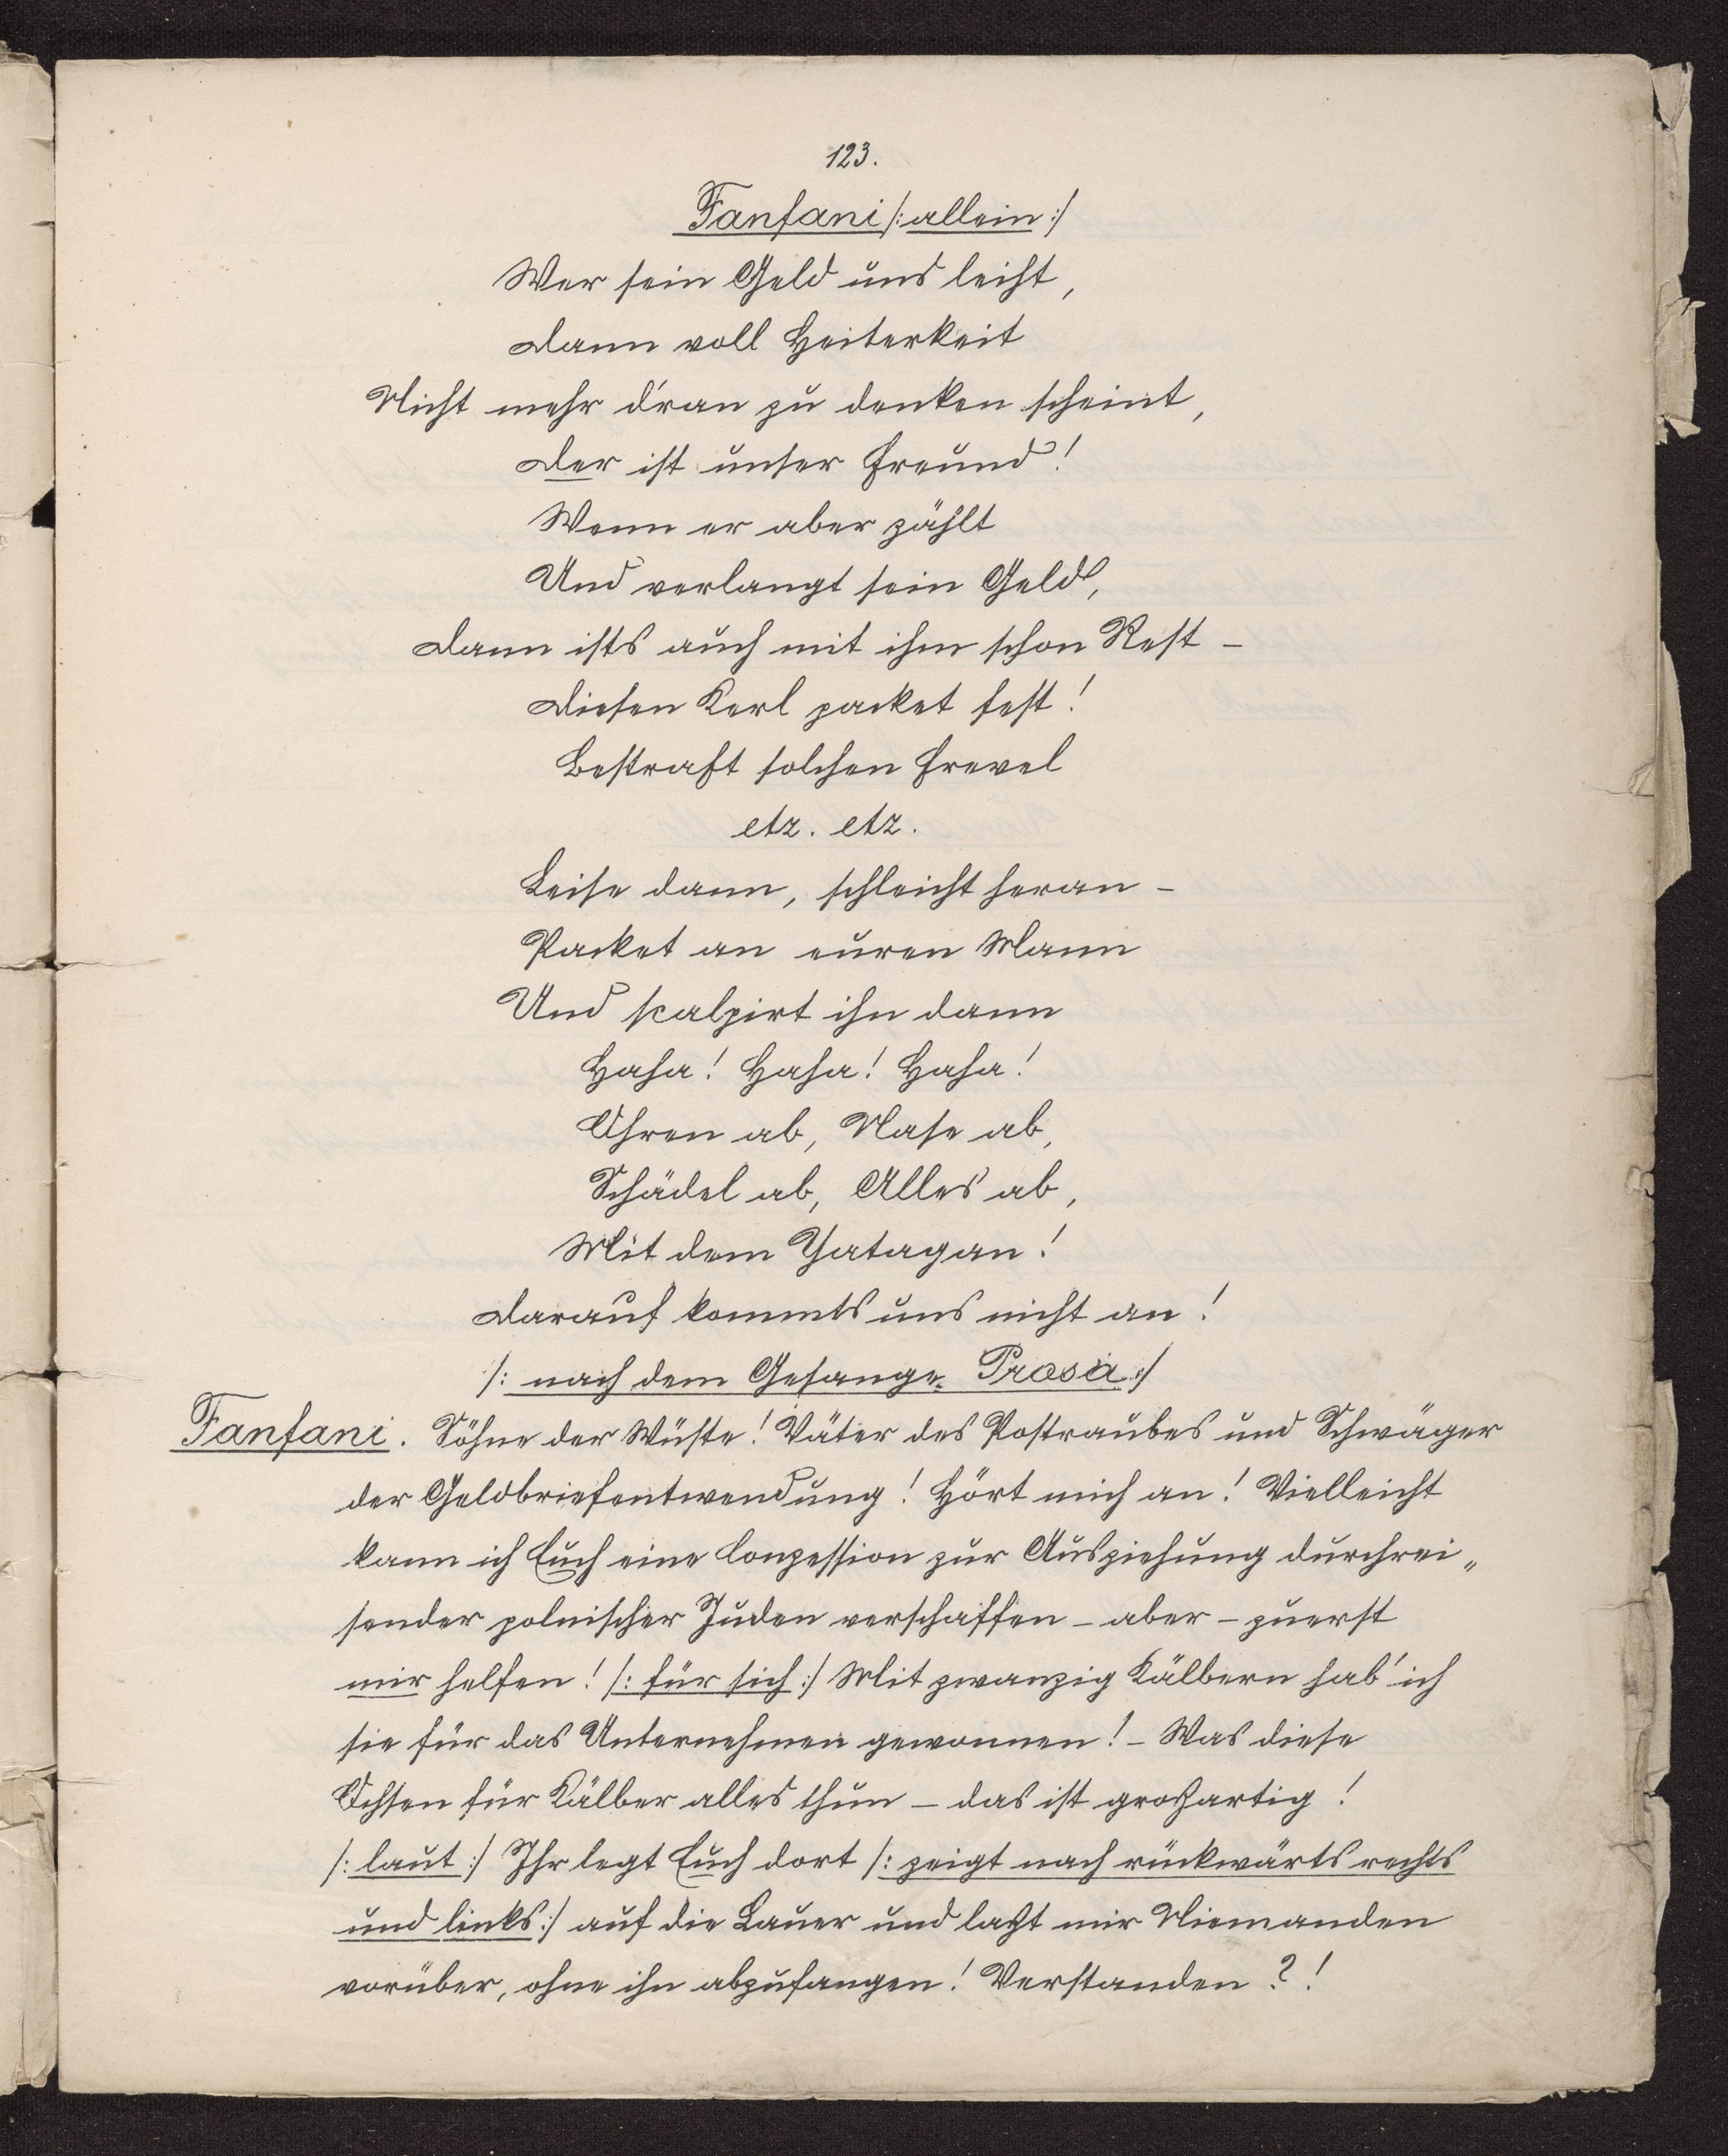 123.
Fanfani /: allein :/
Wer sein Geld uns leiht,
Dann voll Heiterkeit
Nicht mehr d'ran zu denken scheint,
Der ist unser Freund!
Wenn er aber zählt
Und verlangt sein Geld,
Dann ists auch mit ihm schon Rest –
Diesen Kerl packet fest!
Bestraft solchen Frevel
etz. etz.
Leise dann, schleicht heran –
Packet an euren Mann
Und scalpirt ihn dann
Haha! Haha! Haha!
Ohren ab, Nase ab,
Schädel ab, Alles ab,
Mit dem Yatagan!
Darauf kommts uns nicht an!
/: nach dem Gesange. Prosa :/
Fanfani. Söhne der Wüste! Väter des Postraubes und Schwäger
der Geldbriefentwendung! Hört mich an! Vielleicht
kann ich Euch eine Conzession zur Ausziehung durchrei„
sender polnischer Juden verschaffen – aber – zuerst
mir helfen! /: für sich :/ Mit zwanzig Kälbern hab' ich
sie für das Unternehmen gewonnen! – Was diese
Ochsen für Kälber alles thun – das ist großartig!
/: laut :/ Ihr legt Euch dort /: zeigt nach rückwärts rechts
und links :/ auf die Lauer und laßt mir Niemanden
vorüber, ohne ihn abzufangen! Verstanden?!